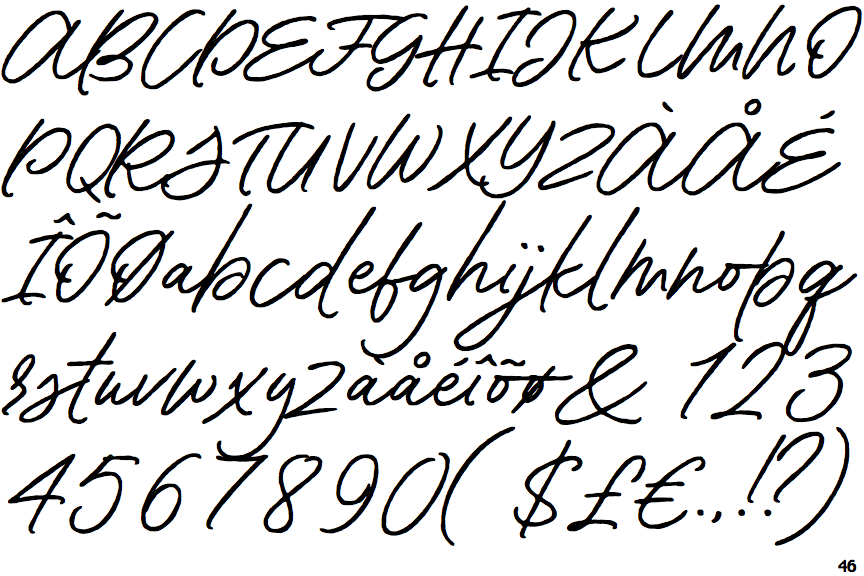 ABCDEFGHIJKLMNO
PQRSTUVWXYZÀÅÉ
ÎÕØabcdefghijklmnopq
rstuvwxyzàåéîõø&123
4567890($£€.,!?)
46